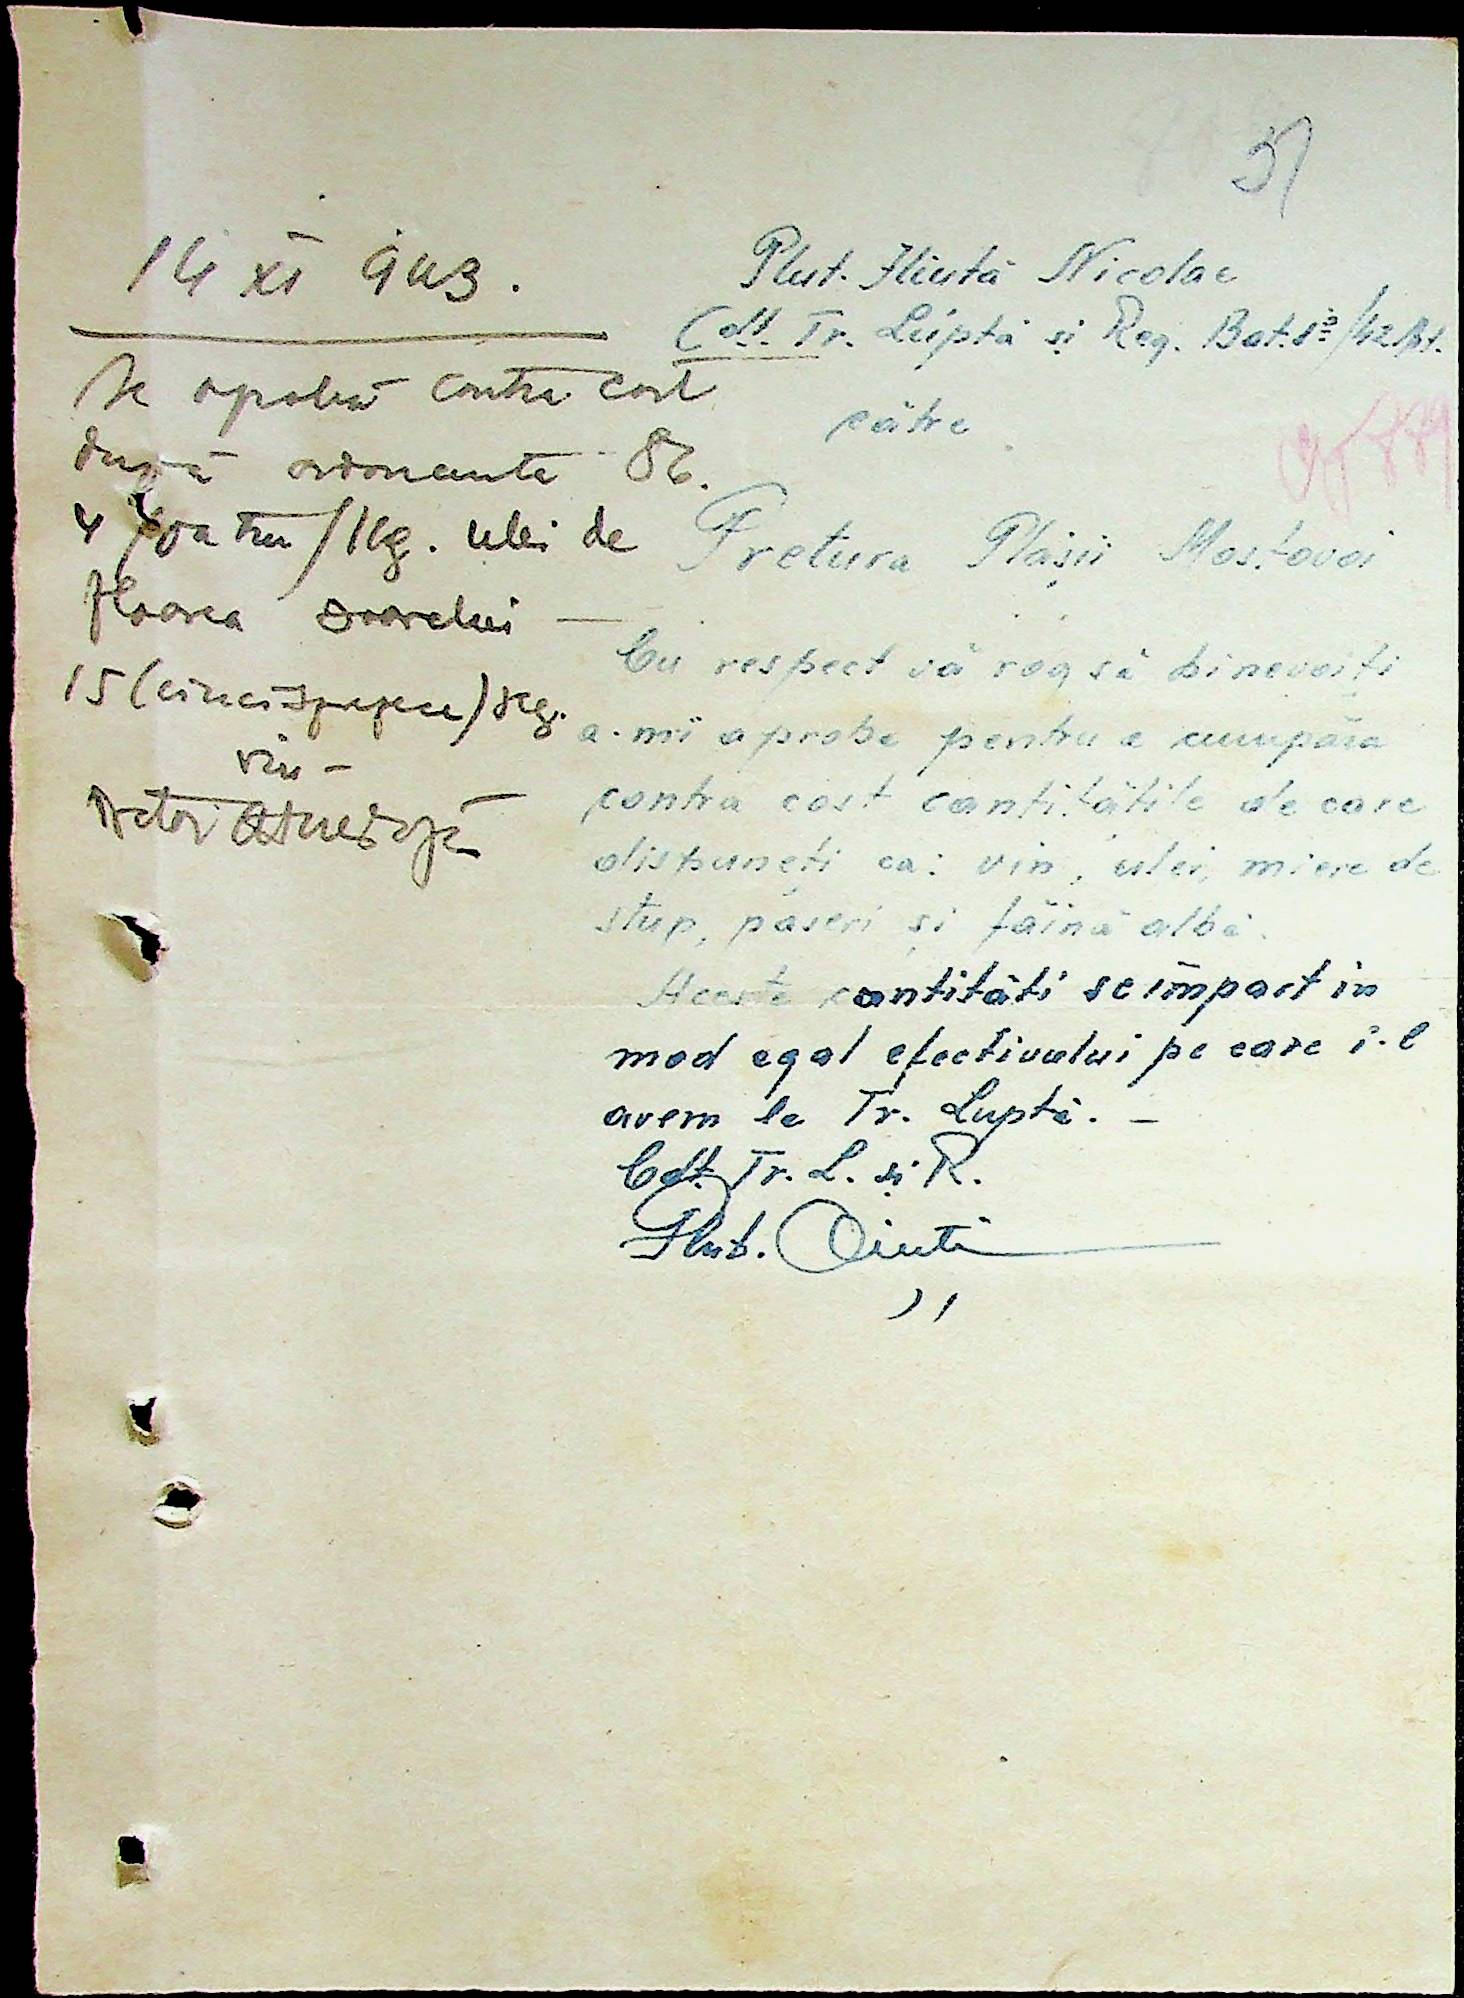 51
14 XI 943.
Se aprobă contra cost
după ordonanta 86.
4 patru / Kg. ulei de
floarea soarelui —
15 (cincisprezece) Kg.
vin –
Pretor
Plut. Iliută Nicolae
Cdt. Tr. Luptă și Reg. Bat.
către
Pretura Plășii Mostovoi
Cu respect vă rog să binevoiți
a-mi aproba pentru a cumpăra
contra cost cantitătile de care
dispuneți ca: vin, ulei, miere de
stup, păseri și făină albă.
Aceste cantități se împart in
mod egal efectivului pe care i-l
avem la Tr. Luptă. —
Cdt. Tr. L. și R.
Plut.